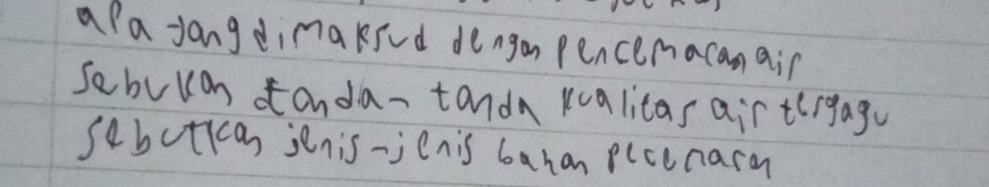 apa yang dimaksud dengan pencemaran air
sebukan tanda-tanda kualitas air tergagu
sebutkan jenis-jenis bahan pecemaran